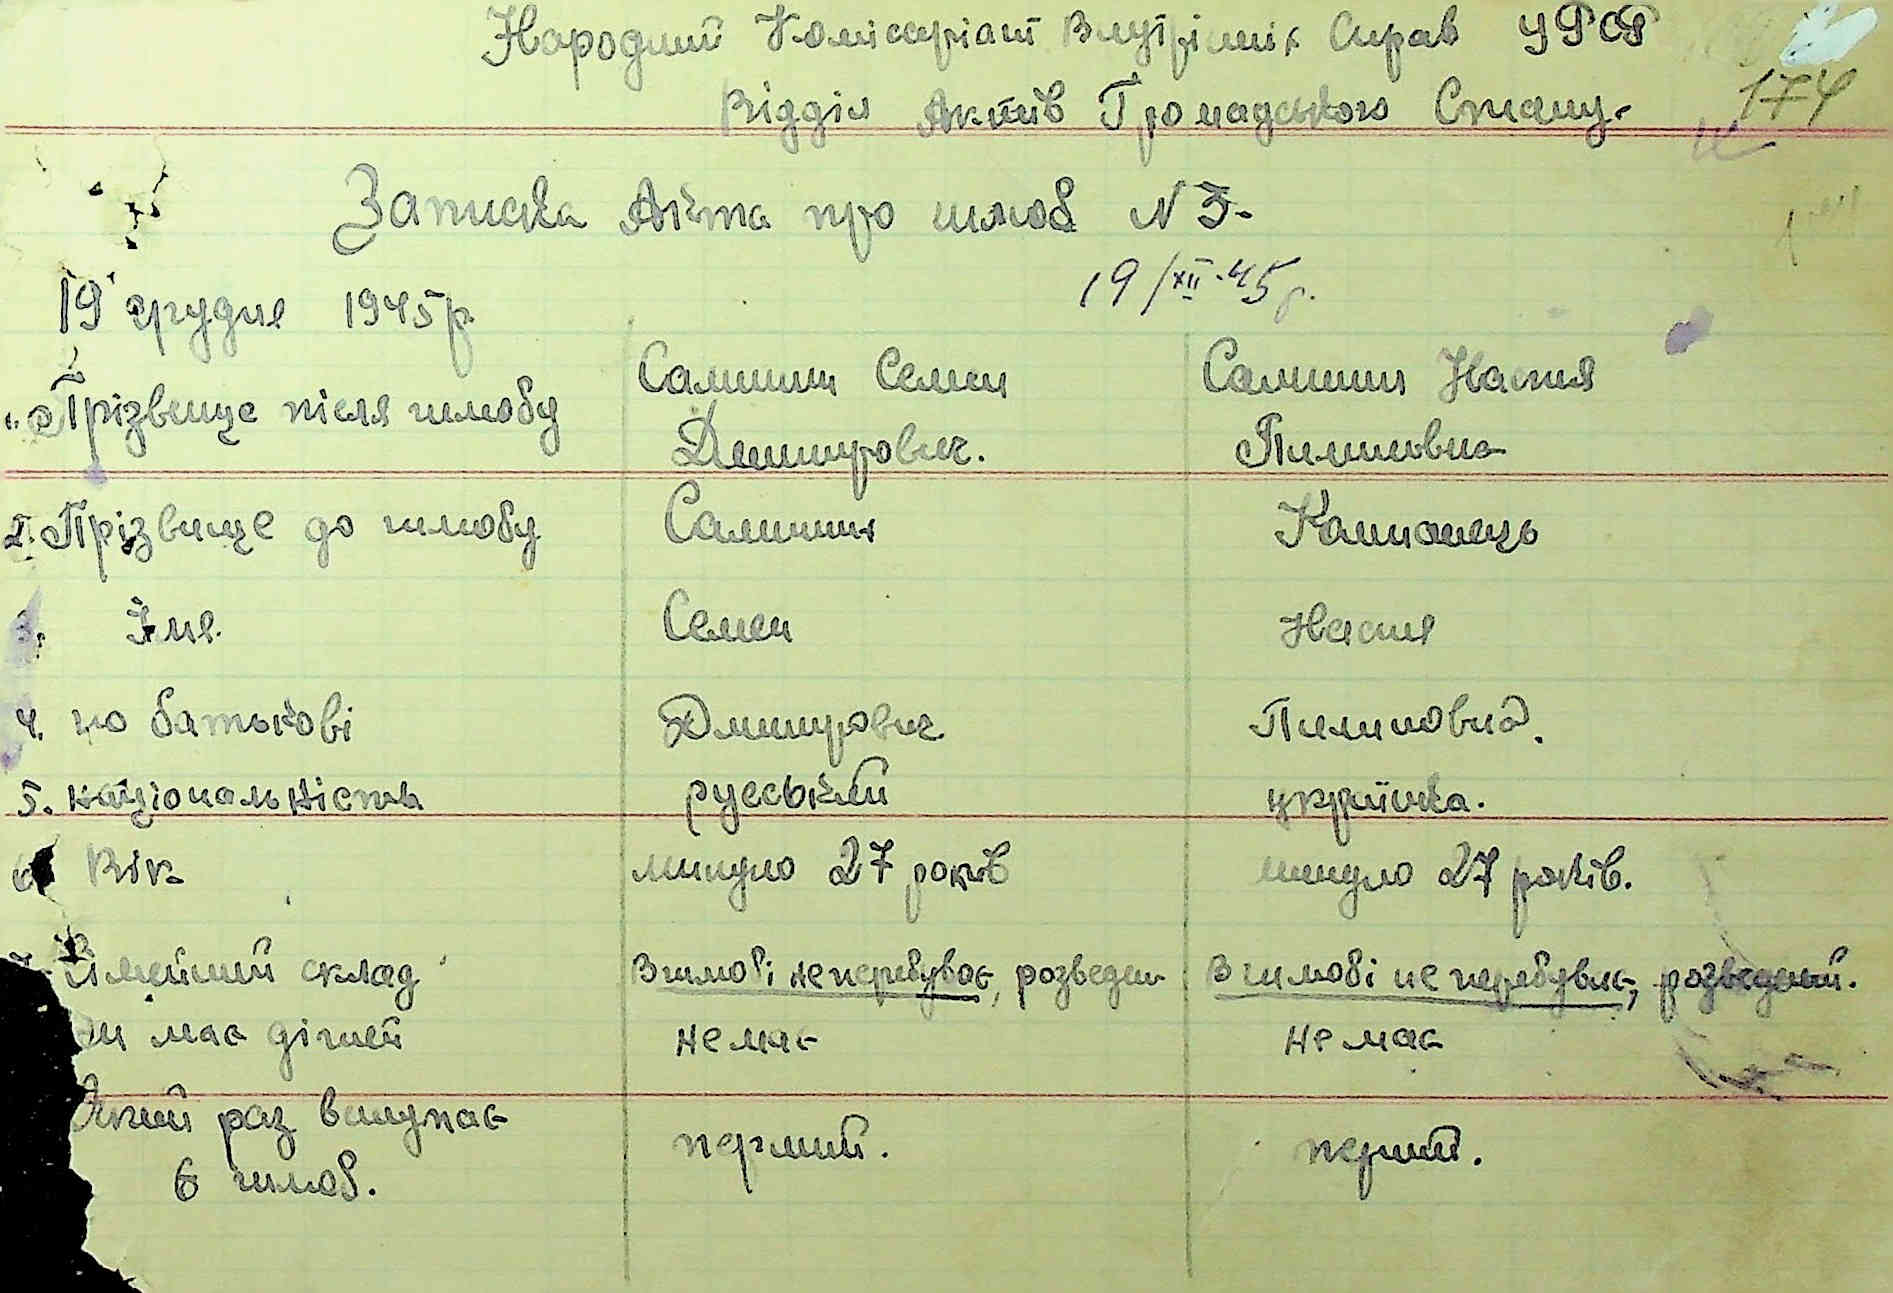 Народний Комісаріат Внутрішніх Справ УРСР
174
Відділ Актів Громадського Стану.
Записка Акта про шлюб N 3.
19 грудня 1945р.
19/XII-45 р.
Прізвище після шлюбу
Самишин Семен
Дмитрович.
Самишин Настя
Пилипівна
2. Прізвище до шлюбу
Самишин
Камонець
3. Імя.
Семен
Настя
4. по батькові
Дмитрович
Пилиповна.
5. національність
руський
українка.
6. Вік
минуло 27 років
минуло 27 років.
сімейний склад
В шлюбі не перебуває, розведен
В шлюбі не перебуває, розведений.
чи має дітей
не має
не має
Який раз вступає
в шлюб.
перший.
перший.